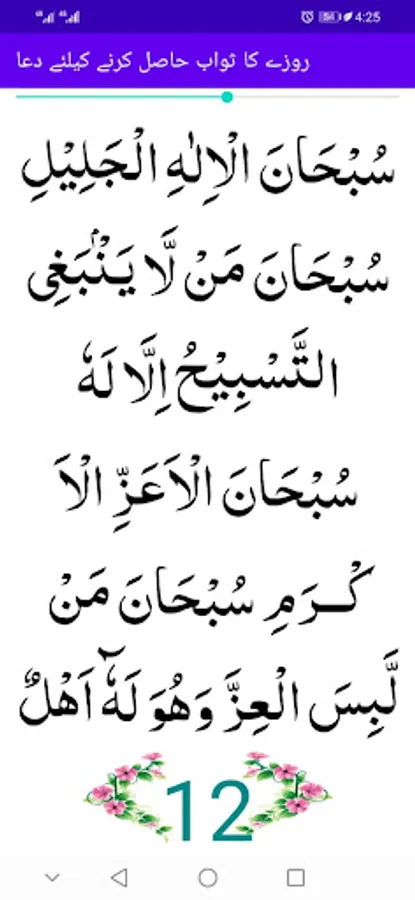 4:25
روزے کا ثواب حاصل کرنے کیلئے دعا
سُبْحَانَ الْاِلٰهِ الْجَلِیْلِ
سُبْحَانَ مَنْ لَّا یَنْۢبَغِی
التَّسْبِیْحُ اِلَّا لَهٗ
سُبْحَانَ الْاَعَزِّ الْاَ
كْـرَمِ سُبْحَانَ مَنْ
لَّبِسَ الْعِزَّ وَهُوَ لَهٗۤ اَهْلٌ
12